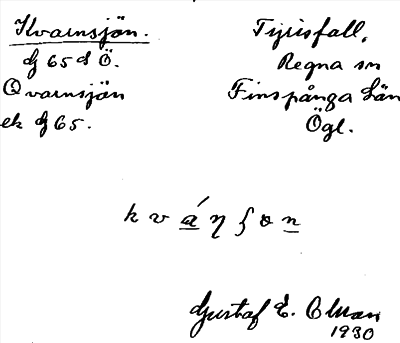 Kvarnsjön.
dj 65 d Ö.
Qvarnsjön
ek dj 65.
Tjrisfall,
Regna sn
Finspånga län
Ögl.
k v á η ʃ ɵ n
Gustaf E.
1930